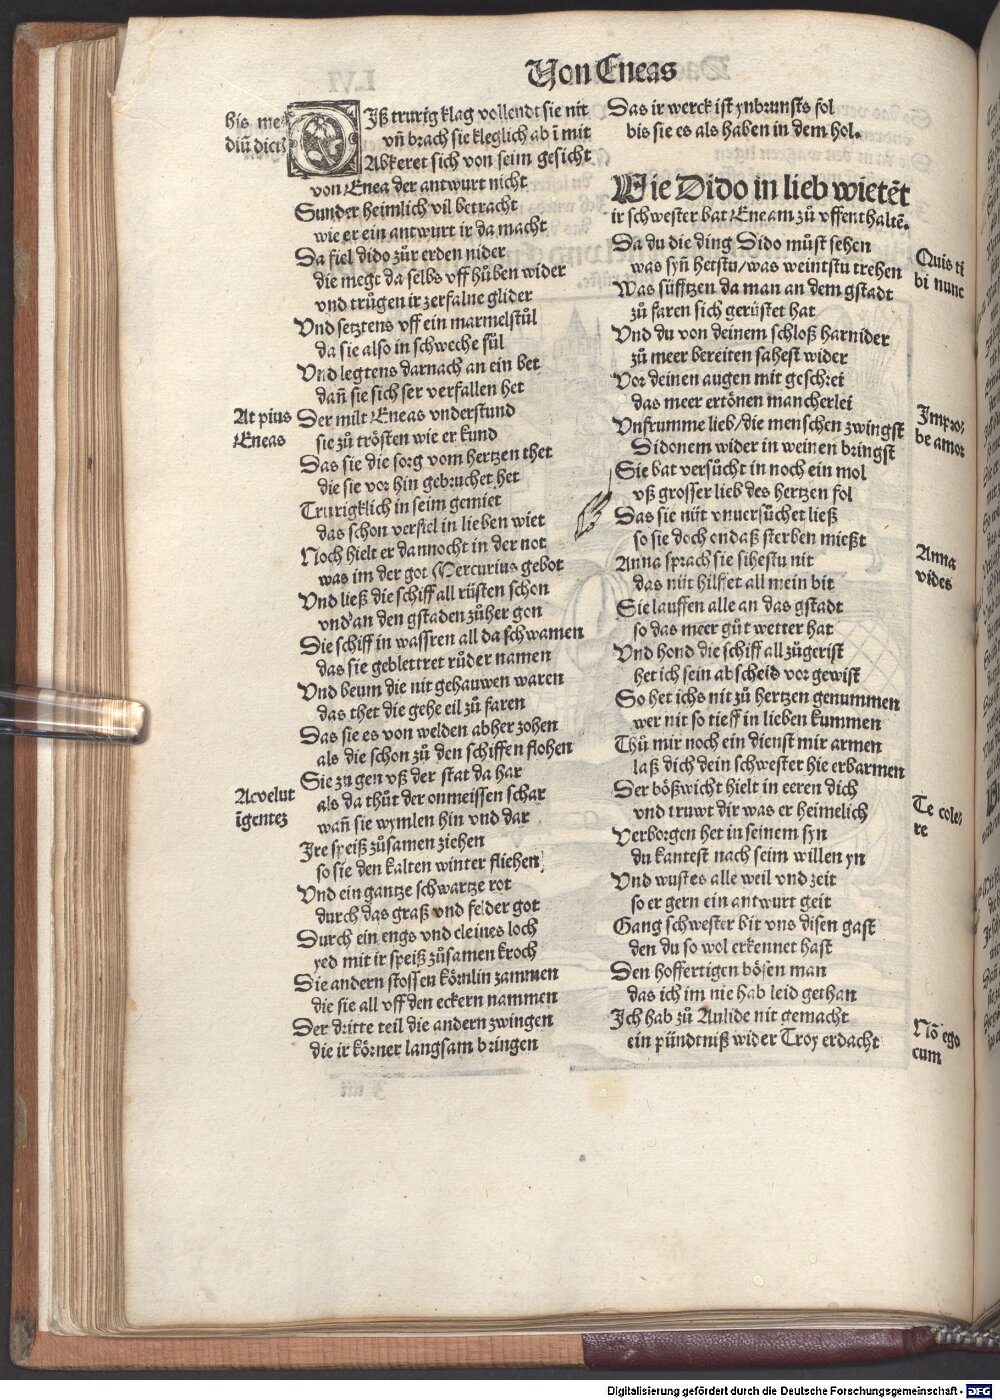 Von Eneas
His med
diū dictis
Diß trurig klag vollendt sie nit
vn̄ brach sie kleglich ab ī mit
Abkeret sich von seim gesicht
von Enea der antwurt nicht
Sunder heimlich vil betracht
wie er ein antwurt ir da macht
Da fiel dido zůr erden nider
die megt da selbs vff hůben wider
vnd trůgen ir zerfalne glider
Vnd setztens vff ein marmelstůl
da sie also in schweche fůl
Vnd legtens darnach an ein bet
dan̄ sie sich ser verfallen het
At pius
Eneas
Der milt Eneas vnderstund
sie zů trösten wie er kund
Das sie die sorg vom hertzen thet
die sie vor hin gebruchet het
Trurigklich in seim gemiet
das schon verfiel in lieben wiet
Noch hielt er dannocht in der not
was im der got Mercurius gebot
Vnd ließ die schiff all rüsten schon
vnd an den gstaden züher gon
Die schiff in wassren all da schwamen
das sie geblettret růder namen
Vnd beum die nit gehauwen waren
das thet die gehe eil zů faren
Das sie es von welden abher zohen
als die schon zů den schiffen flohen
Sie zugen vß der stat da har
Ac velut
īgentez
als da thůt der onmeissen schar
wan̄ sie wymlen hin vnd dar
Ire speiß zůsamen ziehen
so sie den kalten winter fliehen
Vnd ein gantze schwartze rot
durch das graß vnd felder got
Durch ein engs vnd cleines loch
yed mit ir speiß zůsamen kroch
Die andern stossen körnlin zammen
die sie all vff den eckern nammen
Der dritte teil die andern zwingen
die ir körner langsam bringen
Das ir werck ist ynbrunsts fol
bis sie es als haben in dem hol.
Wie Dido in lieb wietēt
ir schwester bat Eneam zů vffenthaltē.
Da du die ding Dido můst sehen
Quis ti
bi nunc
was syn̄ hetstu/was weintstu trehen
Was süfftzen da man an dem gstadt
zů faren sich gerüstet hat
Vnd du von deinem schloß harnider
zů meer bereiten sahest wider
Vor deinen augen mit geschrei
das meer ertönen mancherlei
Impro
be amor
Vnfrumme lieb/die menschen zwingst
Didonem wider in weinen bringst
Sie bat versůcht in noch ein mol
vß grosser lieb des hertzen fol
Das sie nüt vnuersůchet ließ
so sie doch on daß sterben mießt
Anna
vides
Anna sprach sie sihestu nit
das nüt hilffet all mein bit
Sie lauffen alle an das gstadt
so das meer gůt wetter hat
Vnd hond die schiff all zůgerist
het ich sein abscheid vor gewist
So het ichs nit zů hertzen genummen
wer nit so tieff in lieben kummen
Thů mir noch ein dienst mir armen
laß dich dein schwester hie erbarmen
Der bößwicht hielt in eeren dich
Te cole
re
vnd truwt dir was er heimelich
Verborgen het in seinem syn
du kantest nach seim willen yn
Vnd wustes alle weil vnd zeit
so er gern ein antwurt geit
Gang schwester bit vns disen gast
den du so wol erkennet hast
Den hoffertigen bösen man
das ich im nie hab leid gethan
Ich hab zů Aulide nit gemacht
Nō ego
cum
ein pündtniß wider Troy erdacht
Digitalisierung gefördert durch die Deutsche Forschungsgemeinschaft - DFG